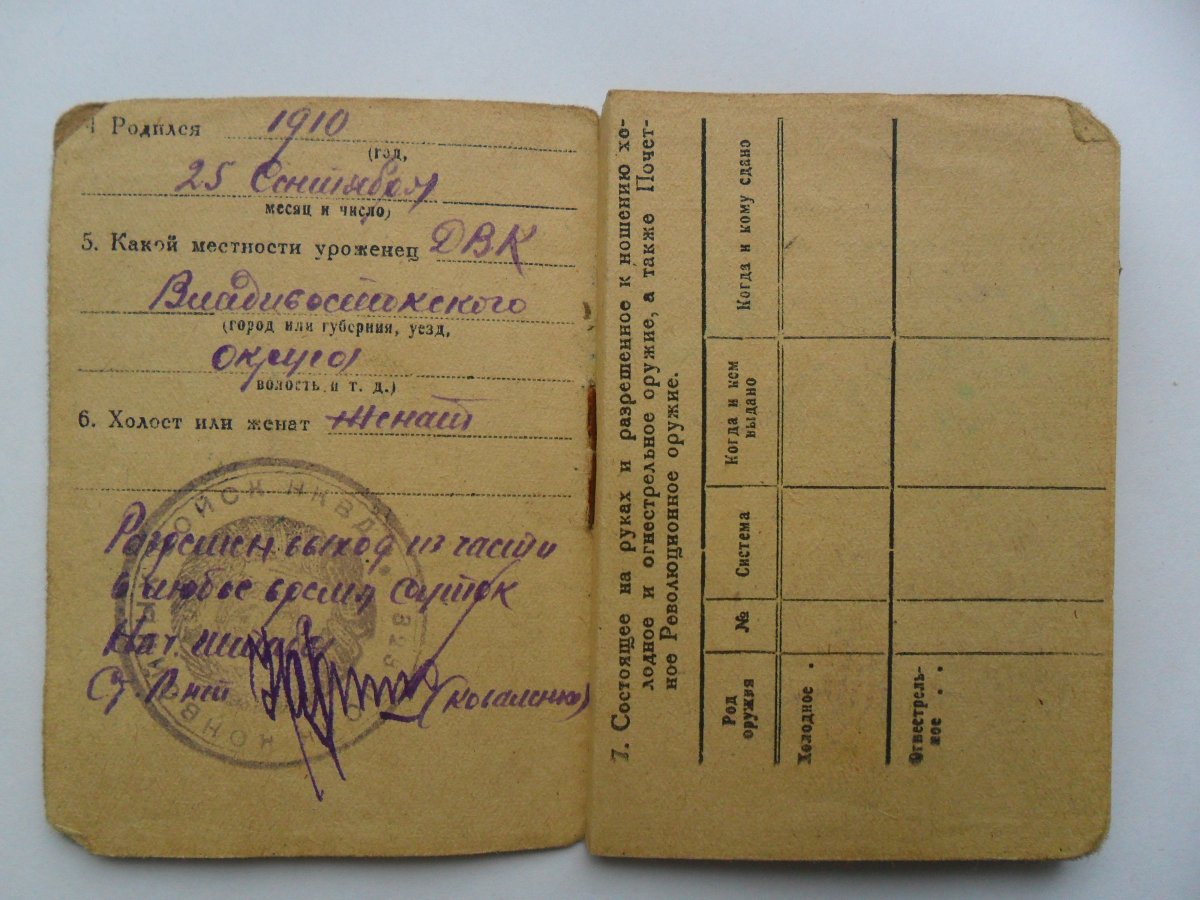 4 Родился 1910
(год,
25 Сентября
месяц и число)
5. Какой местности уроженец ДВК
Владивостокского
(город или губерния, уезд,
округа
волость и т. д.)
6. Холост или женат женат
Разрешен выход из части
в любое время суток
Нач. штаба
Ст. Лнт (Коваленко)
КОНВ ВОЙСК НКВД
7. Состоящее на руках и разрешенное к ношению хо-
лодное и огнестрельное оружие, а также Почет-
ное Революционное оружие.
Род оружия № Система Когда и кем выдано Когда и кому сдано
Холодное .
Огнестрель-
ное . .